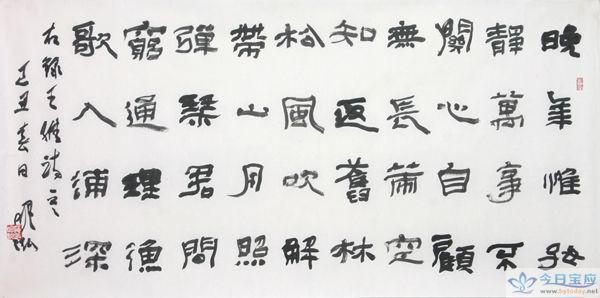 晚年惟好
靜萬事不
關心自顧
無長策空
知返舊林
松風吹解
帶山月照
彈琴君問
窮通理漁
歌入浦深
右録王維詩之
丁丑春日
今日宝应
www.bytoday.net